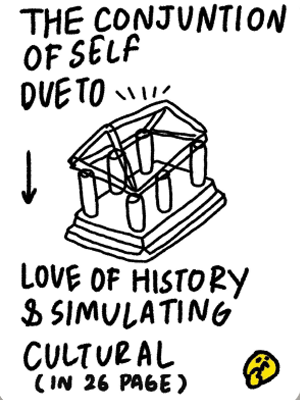 THE CONJUNTION
OF SELF
DUE TO
LOVE OF HISTORY
& SIMULATING
CULTURAL
(IN 26 PAGE)